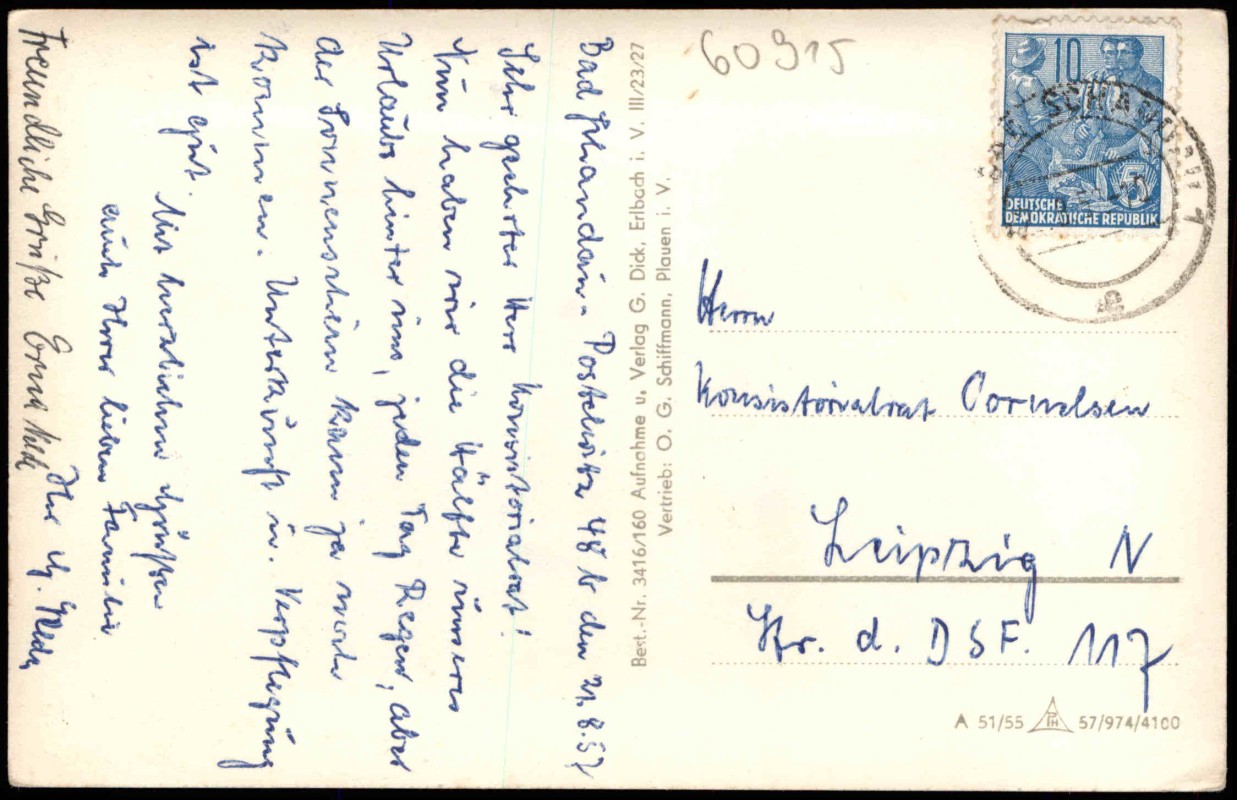 Bad Schandau-Postelwitz 48 b den 21.8.57
Sehr geehrter Herr Konsistorialrat!
Nun haben wir die Hälfte unseres
Urlaubs hinter uns, jeden Tag Regen, aber
der Sonnenschein kann ja noch
kommen. Unterkunft u. Verpflegung
ist gut.
Mit herzlichen Grüßen
auch Ihrer lieben Familie
Ihr
Freundliche Grüße
Best.-Nr. 3416/160 Aufnahme u. Verlag G. Dick, Erlbach i. V. III/23/27
Vertrieb: O. G. Schiffmann, Plauen i. V.
60915
10
5
DEUTSCHE
DEMOKRATISCHE REPUBLIK
BAD SCHANDAU 1
Herrn
Konsistorialrat Cornelsen
Leipzig N
Str. d. DSF. 117
A 51/55 PH 57/974/4100